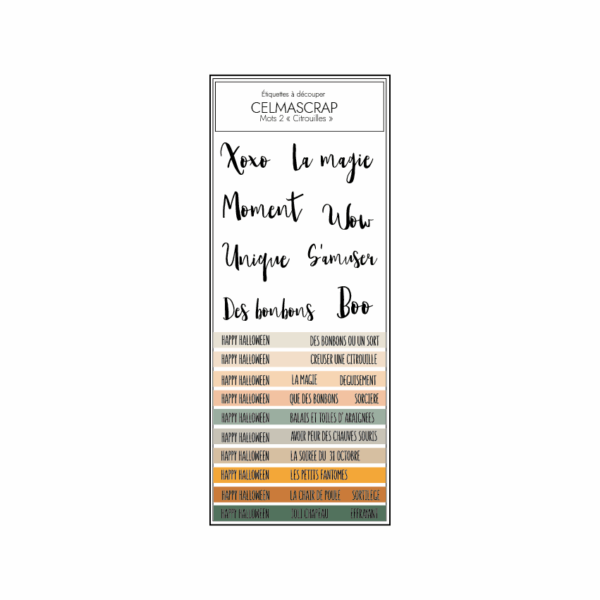 Étiquettes à découper
CELMASCRAP
Mots 2 « Citrouilles »
Xoxo La magie
Moment Wow
Unique S'amuser
Des bonbons Boo
HAPPY HALLOWEEN DES BONBONS OU UN SORT
HAPPY HALLOWEEN CREUSER UNE CITROUILLE
HAPPY HALLOWEEN LA MAGIE DEGUISEMENT
HAPPY HALLOWEEN QUE DES BONBONS SORCIERE
HAPPY HALLOWEEN BALAIS ET TOILES D'ARAIGNEES
HAPPY HALLOWEEN AVOIR PEUR DES CHAUVES SOURIS
HAPPY HALLOWEEN LA SOIREE DU 31 OCTOBRE
HAPPY HALLOWEEN LES PETITS FANTOMES
HAPPY HALLOWEEN LA CHAIR DE POULE SORTILEGE
HAPPY HALLOWEEN JOLI CHAPEAU EFFRAYANT